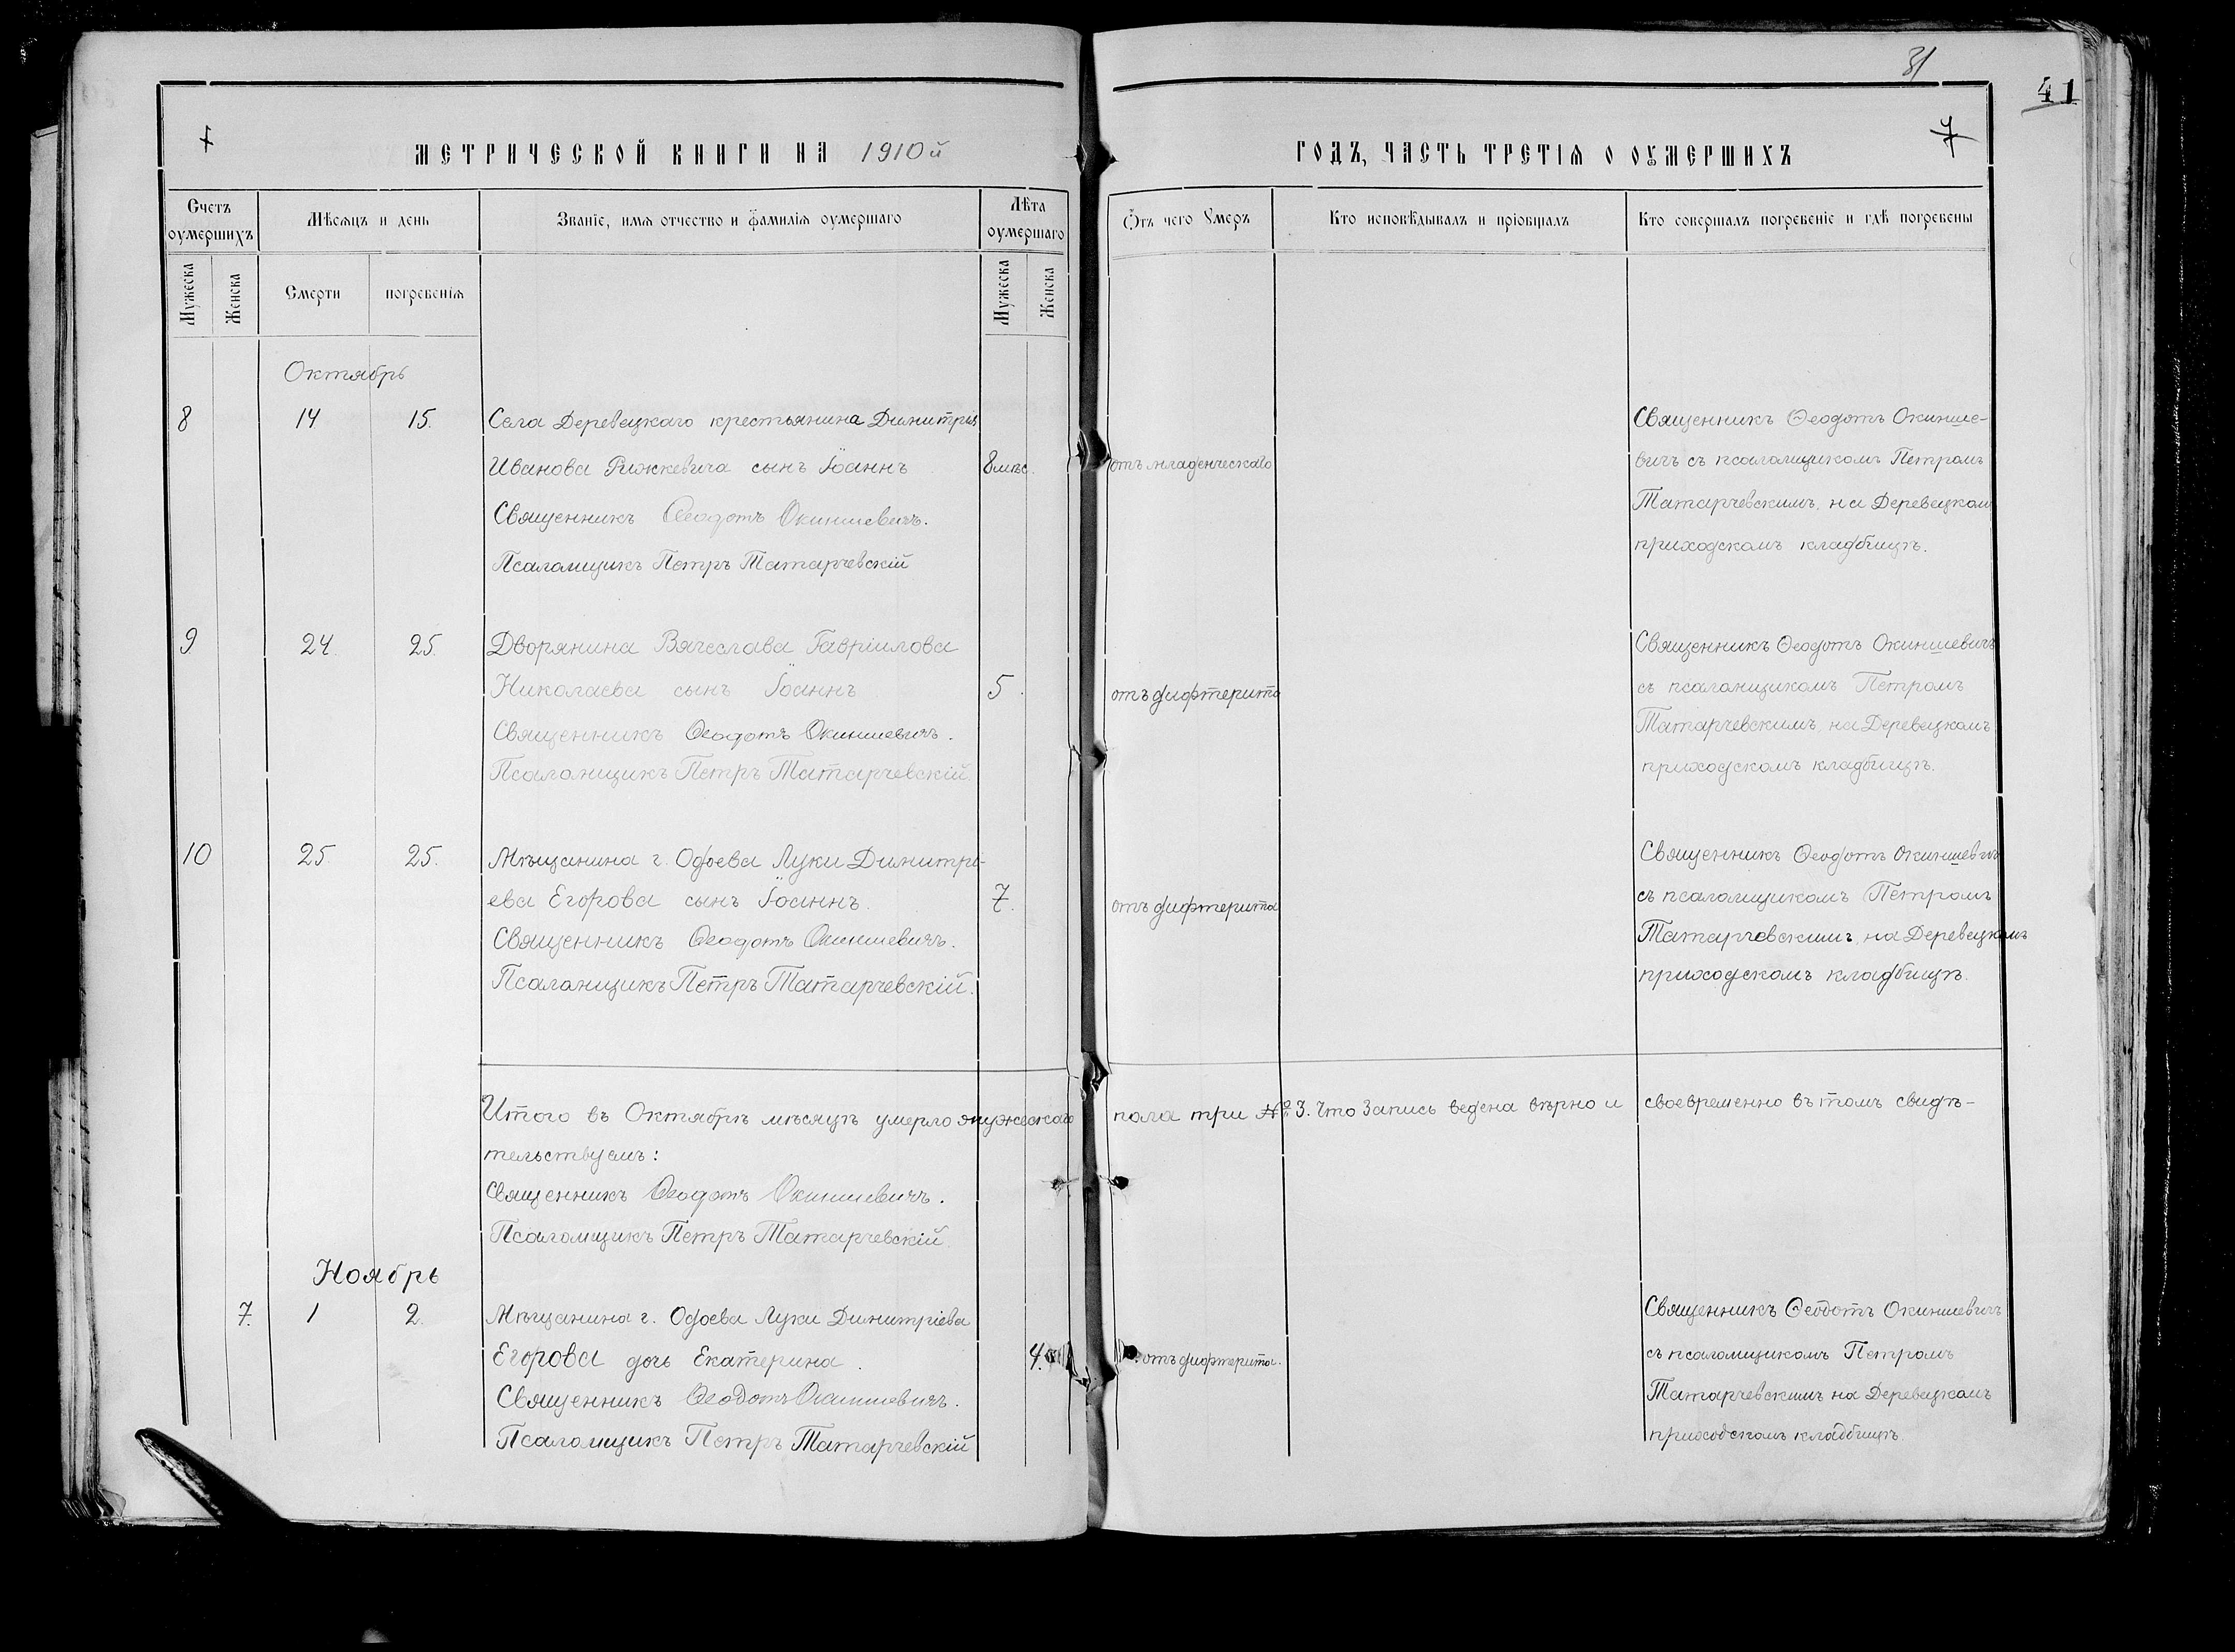 81
41
7
7
МЕТРИЧЕСКОЙ КНИГИ НА 1910й
ГОДЪ, ЧАСТЬ ТРЕТІѦ О ОУМЕРШИХЪ
Счетъ оумершихъ
Мѣсѧцъ и день
Званіе, имѧ отчество и фамиліѧ оумершаго
Лѣта оумершаго
Ѿтъ чего Умеръ
Кто исповѣдывалъ и пріобщалъ
Кто совершалъ погребеніе и гдѣ погребены
Мужеска
Женска
Смерти
погребеніѧ
Мужеска
Женска
Октябрь
8 14 15. Села Деревецкаго крестьянина Димитрія
Иванова Рижкевича сынъ Іоаннъ 8 мѣс. отъ младенческаго
Священникъ Ѳеодотъ Окиншевичъ.
Псаломщикъ Петръ Татарчевскій
Священникъ Ѳеодотъ Окинше-
вичъ съ псаломщикомъ Петромъ
Татарчевскимъ, на Деревецком
приходскомъ кладбищѣ.
9 24 25. Дворянина Вячеслава Гавріилова
Николаева сынъ Іоаннъ 5. отъ дифтерита
Священникъ Ѳеодотъ Окиншевичъ.
Псаломщикъ Петръ Татарчевскій
Священникъ Ѳеодотъ Окиншевичъ
съ псаломщикомъ Петромъ
Татарчевскимъ, на Деревецкомъ
приходскомъ кладбищѣ.
10 25. 25. Мѣщанина г. Одоева Луки Димитрі-
ева Егорова сынъ Іоаннъ. 7. отъ дифтерита
Священникъ Ѳеодотъ Окиншевичъ.
Псаломщикъ Петръ Татарчевскій.
Священникъ Ѳеодотъ Окиншевичъ
съ псаломщикомъ Петромъ
Татарчевскимъ, на Деревецкомъ
приходскомъ кладбищѣ.
Итого въ Октябрѣ мѣсяцѣ умерло мужескаго пола три № 3. Что запись ведена вѣрно и своевременно въ томъ свидѣ-
тельствуемъ:
Священникъ Ѳеодотъ Окиншевичъ.
Псаломщикъ Петръ Татарчевскій
Ноябрь
7. 1 2. Мѣщанина г. Одоева Луки Димитріева
Егорова дочь Екатерина. 4. отъ дифтерита.
Священникъ Ѳеодотъ Окиншевичъ.
Псаломщикъ Петръ Татарчевскій
Священникъ Ѳеодотъ Окиншевичъ
съ псаломщикомъ Петромъ
Татарчевскимъ на Деревецкомъ
приходскомъ кладбищѣ.